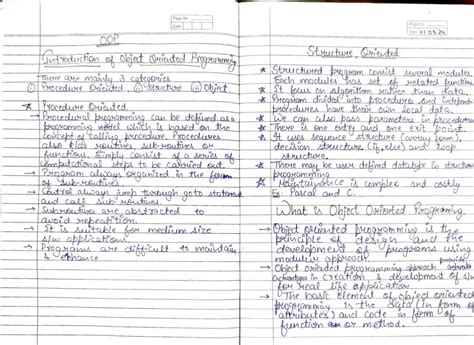 OOP
Introduction of Object Oriented Programming
There are mainly 3 categories
(i) Procedure Oriented (ii) Structure (iii) Object
Procedure Oriented
→ Procedural programming can be defined as a
programming model which is based on the
concept of calling procedure. Procedures
also
routines, sub-routines or
functions. Simply consist of a series of
computational steps to be carried out.
→ Program always organized in the form
of sub-routines.
→ Control always jump through goto statement
and call sub routines.
→ Subroutines are abstracted to
avoid repeatition.
→ It is suitable for medium size
application.
→ Programs are difficult to maintain
&
Page No.
Date
Structure Oriented
★ Structured program consist several modules.
Each modules has set of related function
★ It focus on algorithm rather than data.
★ Program divided into procedures and
procedures have their own local data.
★ We can also pass parameters in procedure
★ There is one entry and one exit point.
★ It uses sequence structure (array form),
decision structure (if, else) and loop
structure.
★ There may be user defined datatype in structure
programming
★ Maintainance is complex and costly
Ex: Pascal and C.
What is Object Oriented Programing
→ Object oriented programming is the
principle of design and the
development of programs using
modular approach.
→ Object oriented programming approach
advantages in creation & development of
for real life application.
→ The basic element of object oriented
programming is the data (in form of
attributes) and code in form of
function or method.